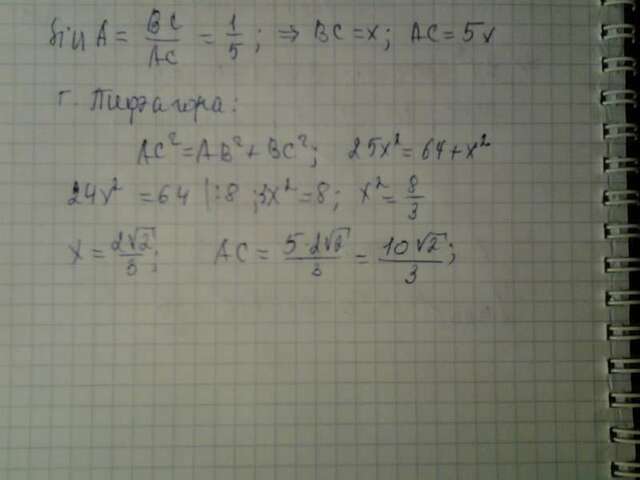 Sin A = BC/AC = 1/5; ⇒ BC = x; AC = 5x
т. Пифагора:
AC² = AB² + BC²; 25x² = 64 + x²
24x² = 64 |:8; 3x² = 8; x² = 8/3
x = 2√2/3; AC = 5·2√2/3 = 10√2/3;